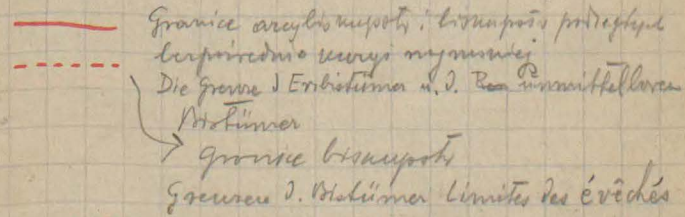 Granice arcybiskupstw i biskupstw podległych
bezpośrednio kuryi rzymskiej
Die Grenze d Erzbistümer u. d. unmittelbaren
Bistümer
granice biskupstw
Grenzen d. Bistümer Limites des évêchés